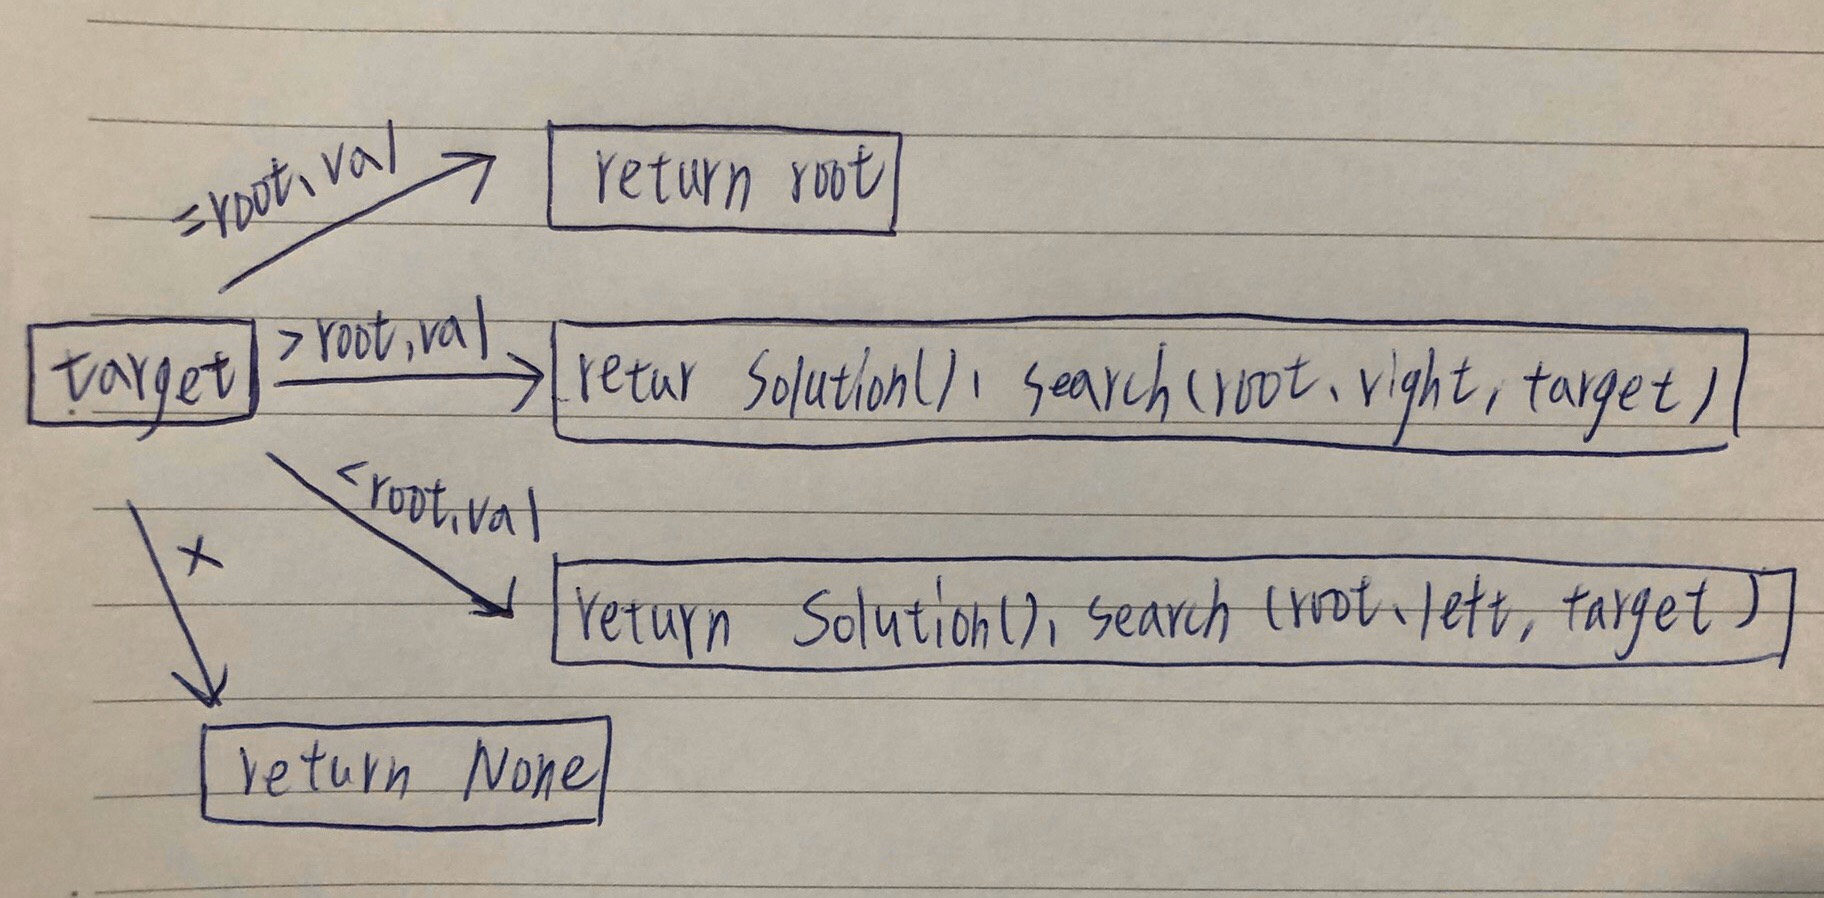 =root.val
return root
target
>root.val
retur Solution().search(root.right, target)
<root.val
x
return Solution().search (root.left, target)
return None